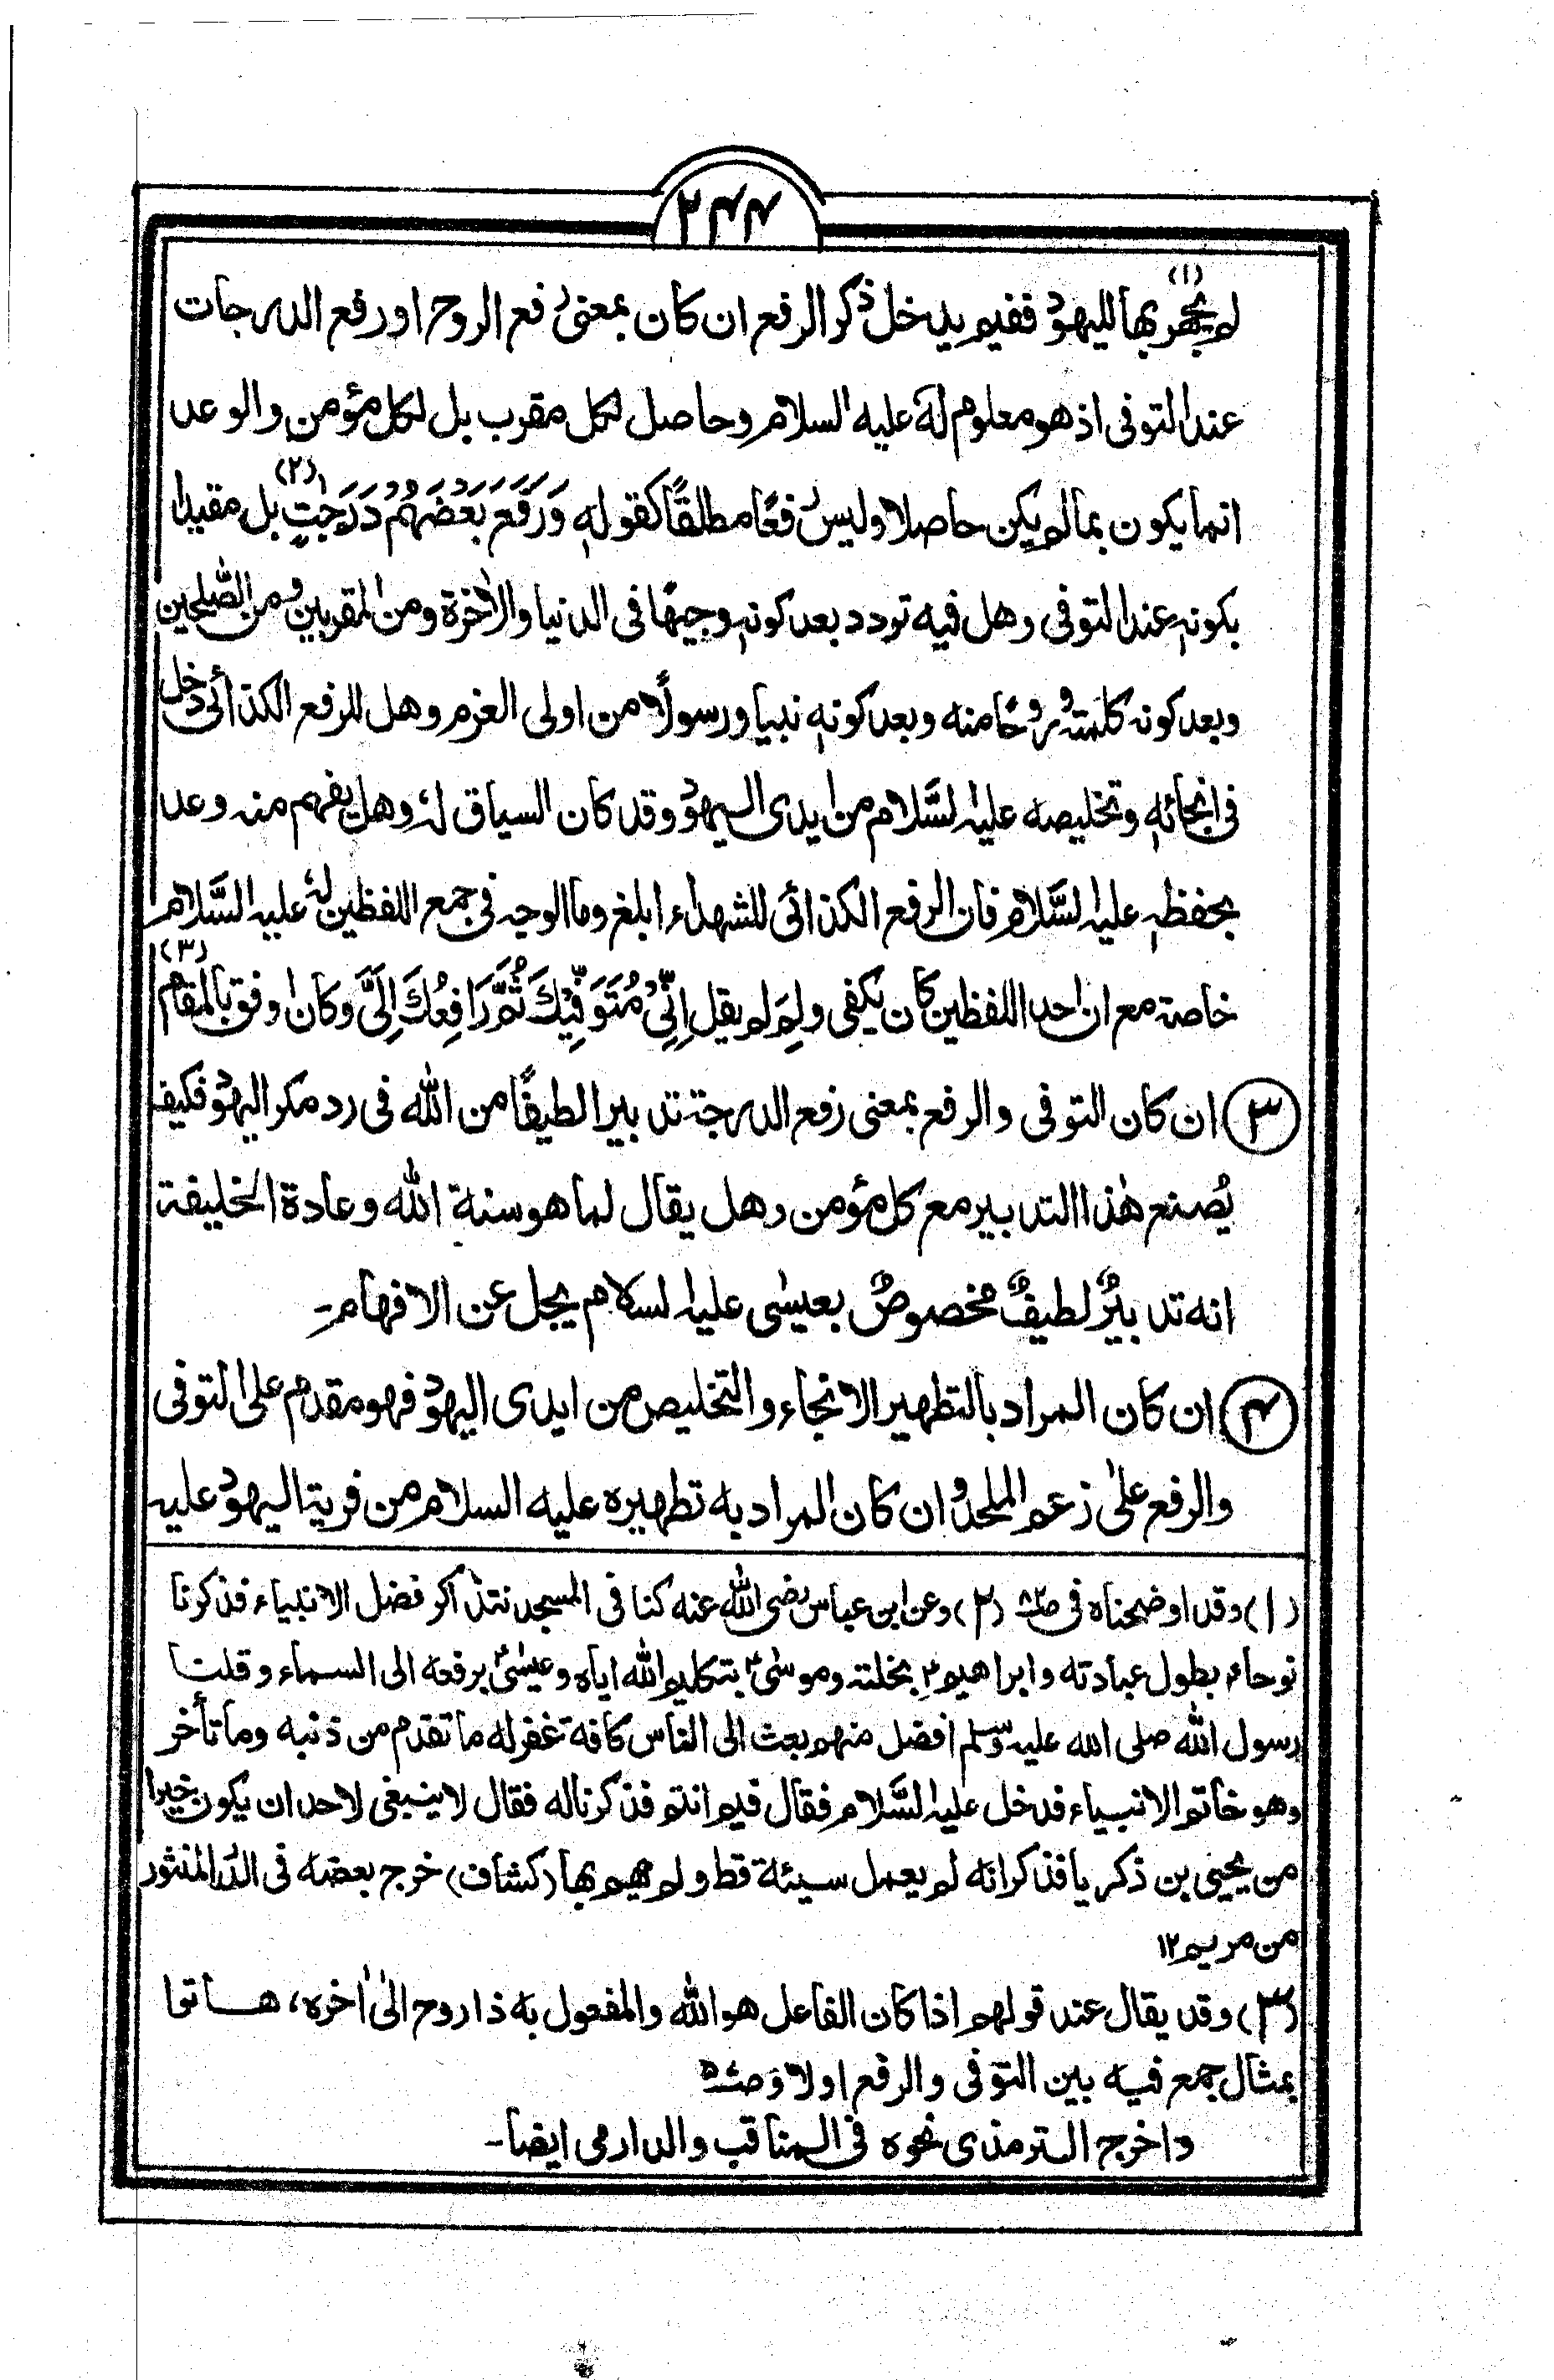 ۲۴۴
لم يجهر بها اليهود ففيم يدخل ذكر الرفع ان كان بمعنى رفع الروح او رفع الدرجات
عند التوفى اذ هو معلوم له عليه السلام وحاصل لكل مقرب بل لكل مؤمن والوعد
انما يكون بما لم يكن حاصلا وليس رفعًا مطلقًا كقوله وَرَفَعَ بَعْضَهُمْ دَرَجٰتٍ (۲) بل مقيدا
بكونه عند التوفى وهل فيه تردد بعد كونه وجيهًا فى الدنيا والاٰخرة ومن المقربين ومن الصّٰلحين
وبعد كونه كلمته وروحًا منه وبعد كونه نبيا ورسولًا من اولى العزم وهل للرفع الكذائى دخل
فى انجائه وتخليصه عليه السَّلام من ايدى اليهود وقد كان السياق له وهل يفهم منه وعد
بحفظه عليه السَّلام فان الرفع الكذائى للشهداء ابلغ وما الوجه فى جمع اللفظين له عليه السَّلام
خاصة مع ان احد اللفظين كان يكفى ولِمَ لم يقل اِنِّىْ مُتَوَفِّيْكَ ثُمَّ رَافِعُكَ اِلَىَّ وكان اوفق بالمقام (۳)
(۳) ان كان التوفى والرفع بمعنى رفع الدرجة تدبيرا لطيفًا من الله فى رد مكر اليهود فكيف
يُصنع هٰذا التدبير مع كل مؤمن وهل يقال لما هو سنة الله وعادة الخليفة
انه تدبيرٌ لطيفٌ مخصوصٌ بعيسٰى عليه السلام يجل عن الافهام۔
(۴) ان كان المراد بالتطهير الانجاء والتخليص من ايدى اليهود فهو مقدم على التوفى
والرفع علىٰ زعم الملحد وان كان المراد به تطهيره عليه السلام من فرية اليهود عليه
(۱) وقد اوضحناه فى (۲) وعن ابن عباس رضى الله عنه كنا فى المسجد نتذاكر فضل الانبياء فذكرنا
نوحا بطول عبادته وابراهيم بخلته وموسٰى بتكليم الله اياه وعيسٰى برفعه الى السماء وقلنا
رسول الله صلى الله عليه وسلم افضل منهم بعث الى الناس كافة غفر له ما تقدم من ذنبه وما تأخر
وهو خاتم الانبياء فدخل عليه السَّلام فقال فيم انتم فذكرنا له فقال لا ينبغى لاحد ان يكون خيرا
من يحيى بن ذكريا فذكر انه لم يعمل سيئة قط ولم يهم بها (كشاف) خرج بعضه فى الدر المنثور
من مريم ۱۲
(۳) وقد يقال عند قولهم اذا كان الفاعل هو الله والمفعول به ذا روح الىٰ اٰخره، هاتوا
بمثال جمع فيه بين التوفى والرفع اولا
واخرج الترمذى نحوه فى المناقب والدارمى ايضا۔